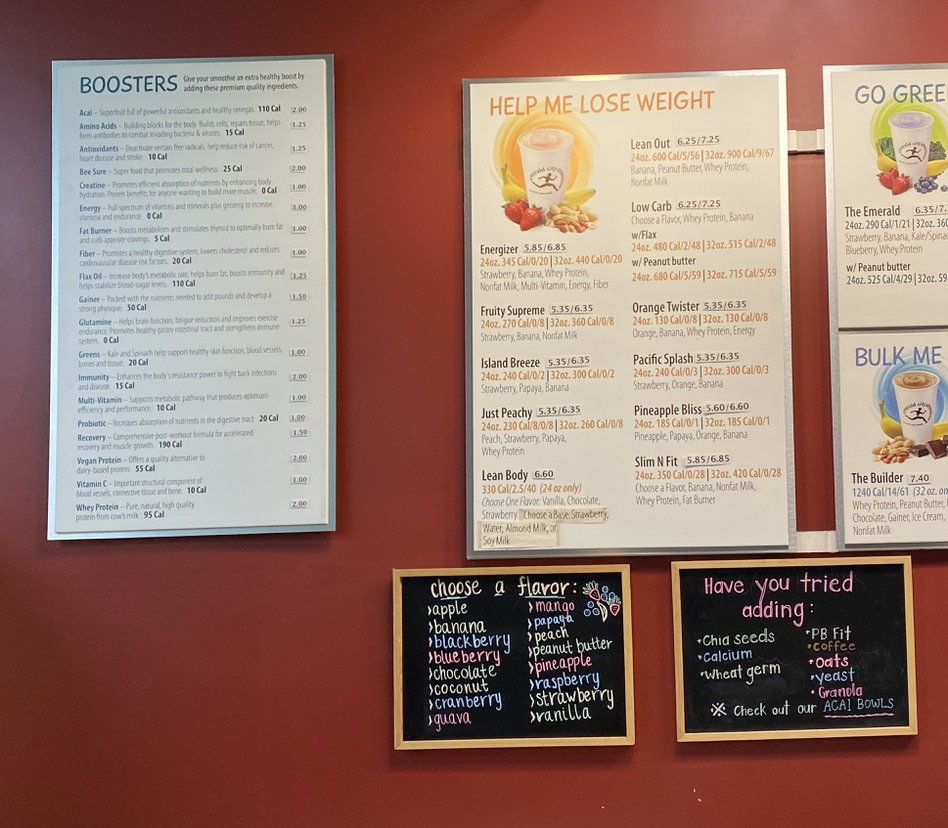 BOOSTERS Give your smoothie an extra healthy boost by
adding these premium quality ingredients.
Acai – Superfruit full of powerful antioxidants and healthy omegas. 110 Cal 2.00
Amino Acids – Building blocks for the body. Builds cells, repairs tissue, helps 1.25
form antibodies to combat invading bacteria & viruses. 15 Cal
Antioxidants – Deactivate certain free radicals, help reduce risk of cancer, 1.25
heart disease and stroke. 10 Cal
Bee Sure – Super food that promotes total wellness. 25 Cal 2.00
Creatine – Promotes efficient absorption of nutrients by enhancing body 1.00
hydration. Proven benefits for anyone wanting to build more muscle. 0 Cal
Energy – Full spectrum of vitamins and minerals plus ginseng to increase 1.00
stamina and endurance. 0 Cal
Fat Burner – Boosts metabolism and stimulates thyroid to optimally burn fat 1.00
and curb appetite cravings. 5 Cal
Fiber – Promotes a healthy digestive system, lowers cholesterol and reduces 1.00
cardiovascular disease risk factors. 20 Cal
Flax Oil – Increase body's metabolic rate, helps burn fat, boosts immunity and 1.25
helps stabilize blood-sugar levels. 110 Cal
Gainer – Packed with the nutrients needed to add pounds and develop a 1.50
strong physique. 50 Cal
Glutamine – Helps brain function, fatigue reduction and improves exercise 1.25
endurance. Promotes healthy gastro intestinal tract and strengthens immune
system. 0 Cal
Greens – Kale and Spinach help support healthy skin function, blood vessels, 1.00
bones and tissue. 20 Cal
Immunity – Enhances the body's resistance power to fight back infections 2.00
and disease. 15 Cal
Multi-Vitamin – Supports metabolic pathway that produces optimum 1.00
efficiency and performance. 10 Cal
Probiotic – Increases absorption of nutrients in the digestive tract. 20 Cal 1.00
Recovery – Comprehensive post-workout formula for accelerated 1.50
recovery and muscle growth. 190 Cal
Vegan Protein – Offers a quality alternative to 2.00
dairy-based protein. 55 Cal
Vitamin C – Important structural component of 1.00
blood vessels, connective tissue and bone. 10 Cal
Whey Protein – Pure, natural, high quality 2.00
protein from cow's milk. 95 Cal
HELP ME LOSE WEIGHT
Energizer 5.85/6.85
24oz. 345 Cal/0/20 | 32oz. 440 Cal/0/20
Strawberry, Banana, Whey Protein,
Nonfat Milk, Multi-Vitamin, Energy, Fiber
Fruity Supreme 5.35/6.35
24oz. 270 Cal/0/8 | 32oz. 360 Cal/0/8
Strawberry, Banana, Nonfat Milk
Island Breeze 5.35/6.35
24oz. 240 Cal/0/2 | 32oz. 300 Cal/0/2
Strawberry, Papaya, Banana
Just Peachy 5.35/6.35
24oz. 230 Cal/8/0/8 | 32oz. 260 Cal/0/8
Peach, Strawberry, Papaya,
Whey Protein
Lean Body 6.60
330 Cal/2.5/40 (24 oz only)
Choose One Flavor: Vanilla, Chocolate,
Strawberry Choose a Base: Strawberry,
Water, Almond Milk, or
Soy Milk
Lean Out 6.25/7.25
24oz. 600 Cal/5/56 | 32oz. 900 Cal/9/67
Banana, Peanut Butter, Whey Protein,
Nonfat Milk
Low Carb 6.25/7.25
Choose a Flavor, Whey Protein, Banana
w/Flax
24oz. 480 Cal/2/48 | 32oz. 515 Cal/2/48
w/ Peanut butter
24oz. 680 Cal/5/59 | 32oz. 715 Cal/5/59
Orange Twister 5.35/6.35
24oz. 130 Cal/0/8 | 32oz. 130 Cal/0/8
Orange, Banana, Whey Protein, Energy
Pacific Splash 5.35/6.35
24oz. 240 Cal/0/3 | 32oz. 300 Cal/0/3
Strawberry, Orange, Banana
Pineapple Bliss 5.60/6.60
24oz. 185 Cal/0/1 | 32oz. 185 Cal/0/1
Pineapple, Papaya, Orange, Banana
Slim N Fit 5.85/6.85
24oz. 350 Cal/0/28 | 32oz. 420 Cal/0/28
Choose a Flavor, Banana, Nonfat Milk,
Whey Protein, Fat Burner
GO GREE
The Emerald 6.35/7.
24oz. 290 Cal/1/21 | 32oz. 360
Strawberry, Banana, Kale/Spinac
Blueberry, Whey Protein
w/ Peanut butter
24oz. 525 Cal/4/29 | 32oz. 59
BULK ME
The Builder 7.40
1240 Cal/14/61 (32 oz. on
Whey Protein, Peanut Butter,
Chocolate, Gainer, Ice Cream,
Nonfat Milk
choose a flavor:
›apple
›banana
›blackberry
›blueberry
›chocolate
›coconut
›cranberry
›guava
›mango
›papaya
›peach
›peanut butter
›pineapple
›raspberry
›strawberry
›vanilla
Have you tried
adding:
•Chia seeds
•Calcium
•Wheat germ
•PB Fit
•Coffee
•Oats
•yeast
•Granola
※ Check out our ACAI BOWLS